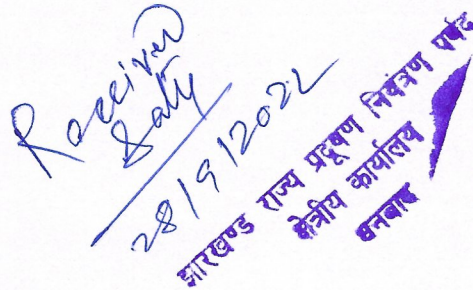 Received
28/9/2022
झारखण्ड राज्य प्रदूषण नियंत्रण पर्षद
क्षेत्रीय कार्यालय
धनबाद